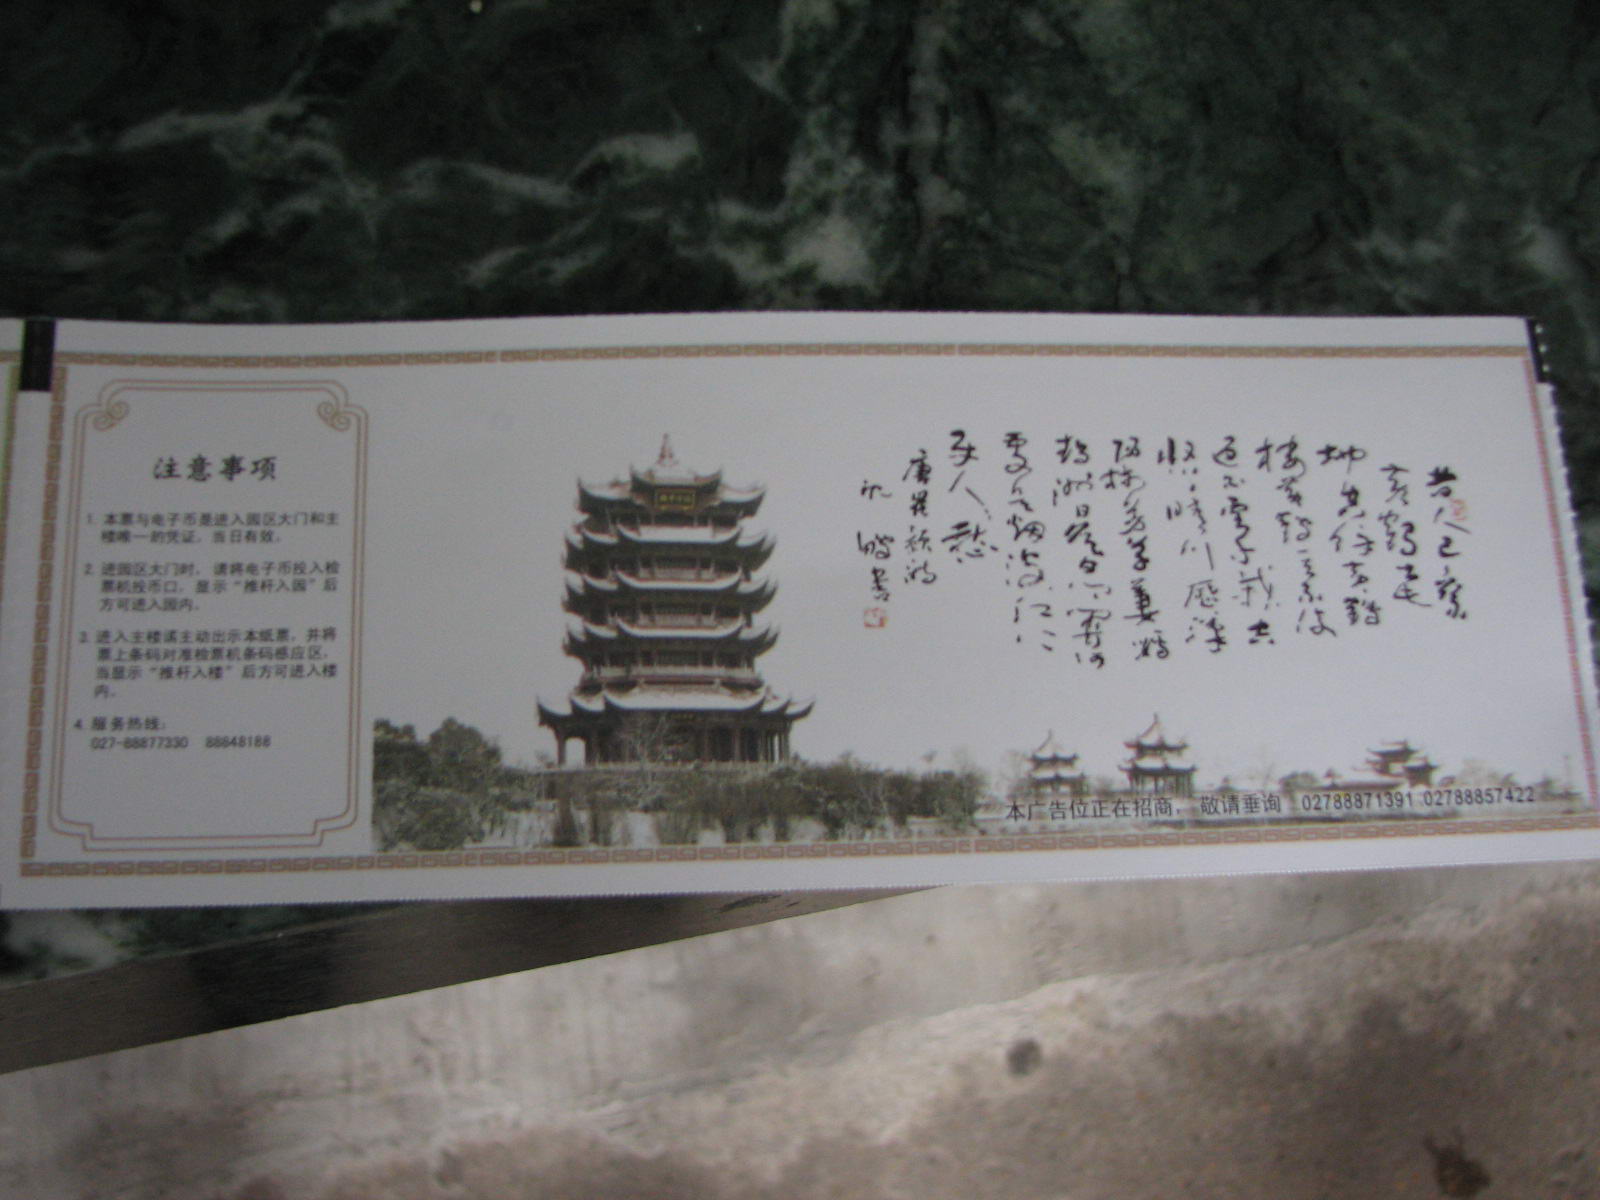 注意事项
1. 本票与电子币是进入园区大门和主
楼唯一的凭证，当日有效。
2. 进园区大门时，请将电子币投入检
票机投币口，显示“推杆入园”后
方可进入园内。
3. 进入主楼请主动出示本纸票，并将
票上条码对准检票机条码感应区，
当显示“推杆入楼”后方可进入楼
内。
4. 服务热线：
027-88877330 88848188
昔人已乘
黄鹤去
此地空余黄鹤
楼黄鹤一去不复
返白云千载空
悠悠晴川历历汉
阳树芳草萋萋鹦
鹉洲日暮乡关何
处是烟波江上
使人愁
唐崔颢诗
本广告位正在招商，敬请垂询 02788871391 02788857422